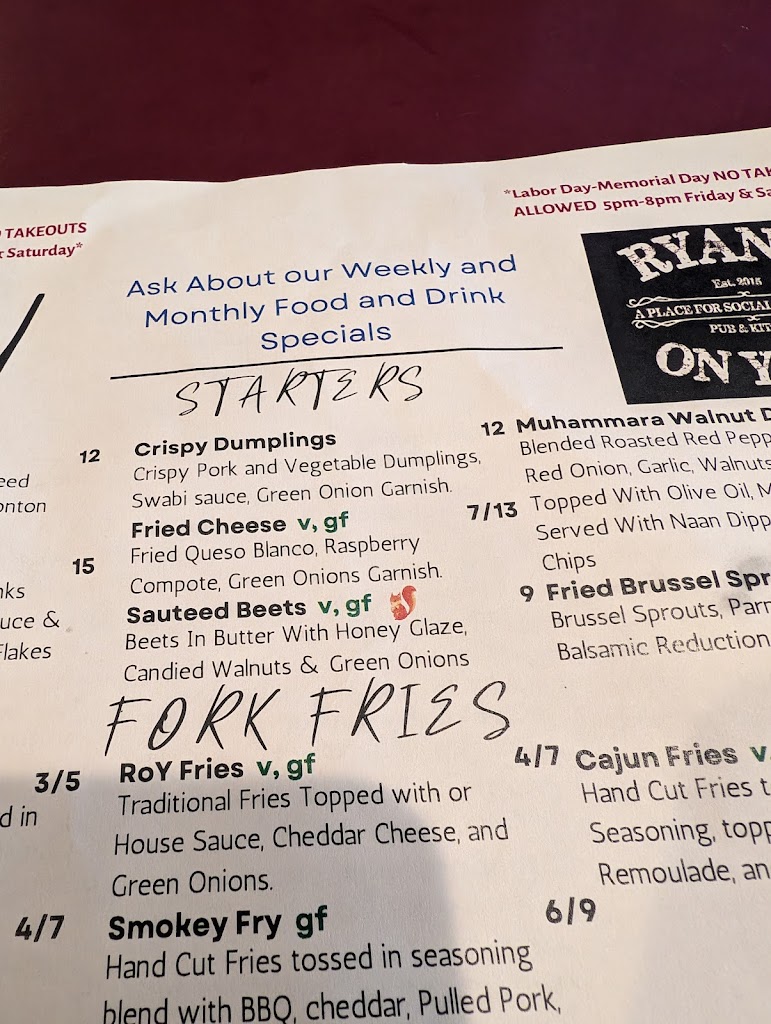 TAKEOUTS
Saturday*
*Labor Day-Memorial Day NO
ALLOWED 5pm-8pm Friday &
Ask About our Weekly and
Monthly Food and Drink
Specials
RYAN
Est. 2015
A PLACE FOR SOCIAL
PUB &
ON Y
STARTERS
12 Crispy Dumplings
Crispy Pork and Vegetable Dumplings,
Swabi sauce, Green Onion Garnish.
Fried Cheese v, gf
15 Fried Queso Blanco, Raspberry
Compote, Green Onions Garnish.
Sauteed Beets v, gf
Beets In Butter With Honey Glaze,
Candied Walnuts & Green Onions
12 Muhammara Walnut
Blended Roasted Red
Red Onion, Garlic, Walnuts
7/13 Topped With Olive Oil,
Served With Naan
Chips
9 Fried Brussel
Brussel Sprouts,
Balsamic Reduction
uce &
Flakes
FORK FRIES
3/5 RoY Fries v, gf
Traditional Fries Topped with or
House Sauce, Cheddar Cheese, and
Green Onions.
4/7 Smokey Fry gf
Hand Cut Fries tossed in seasoning
blend with BBQ, cheddar, Pulled Pork,
4/7 Cajun Fries v
Hand Cut Fries
Seasoning,
Remoulade,
6/9
d in